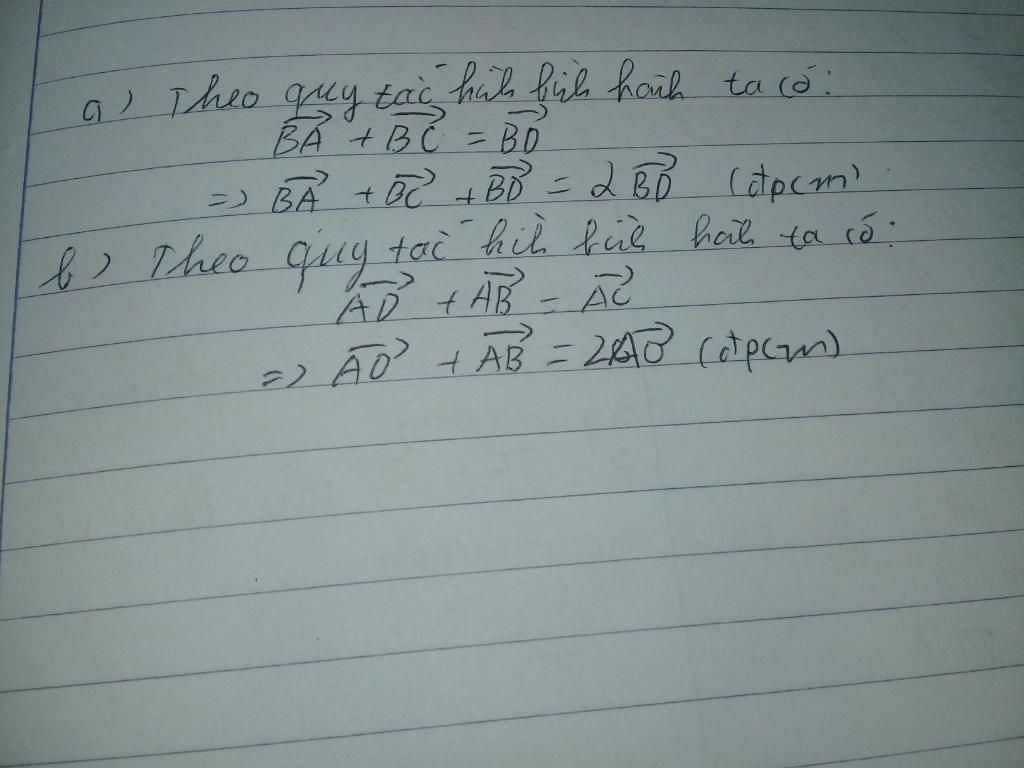 a) Theo quy tắc hình bình hành ta có:
$\overrightarrow{BA} + \overrightarrow{BC} = \overrightarrow{BD}$
=> $\overrightarrow{BA} + \overrightarrow{BC} + \overrightarrow{BD} = 2\overrightarrow{BD}$ (đpcm)
b) Theo quy tắc hình bình hành ta có:
$\overrightarrow{AD} + \overrightarrow{AB} = \overrightarrow{AC}$
=> $\overrightarrow{AD} + \overrightarrow{AB} = 2\overrightarrow{AO}$ (đpcm)